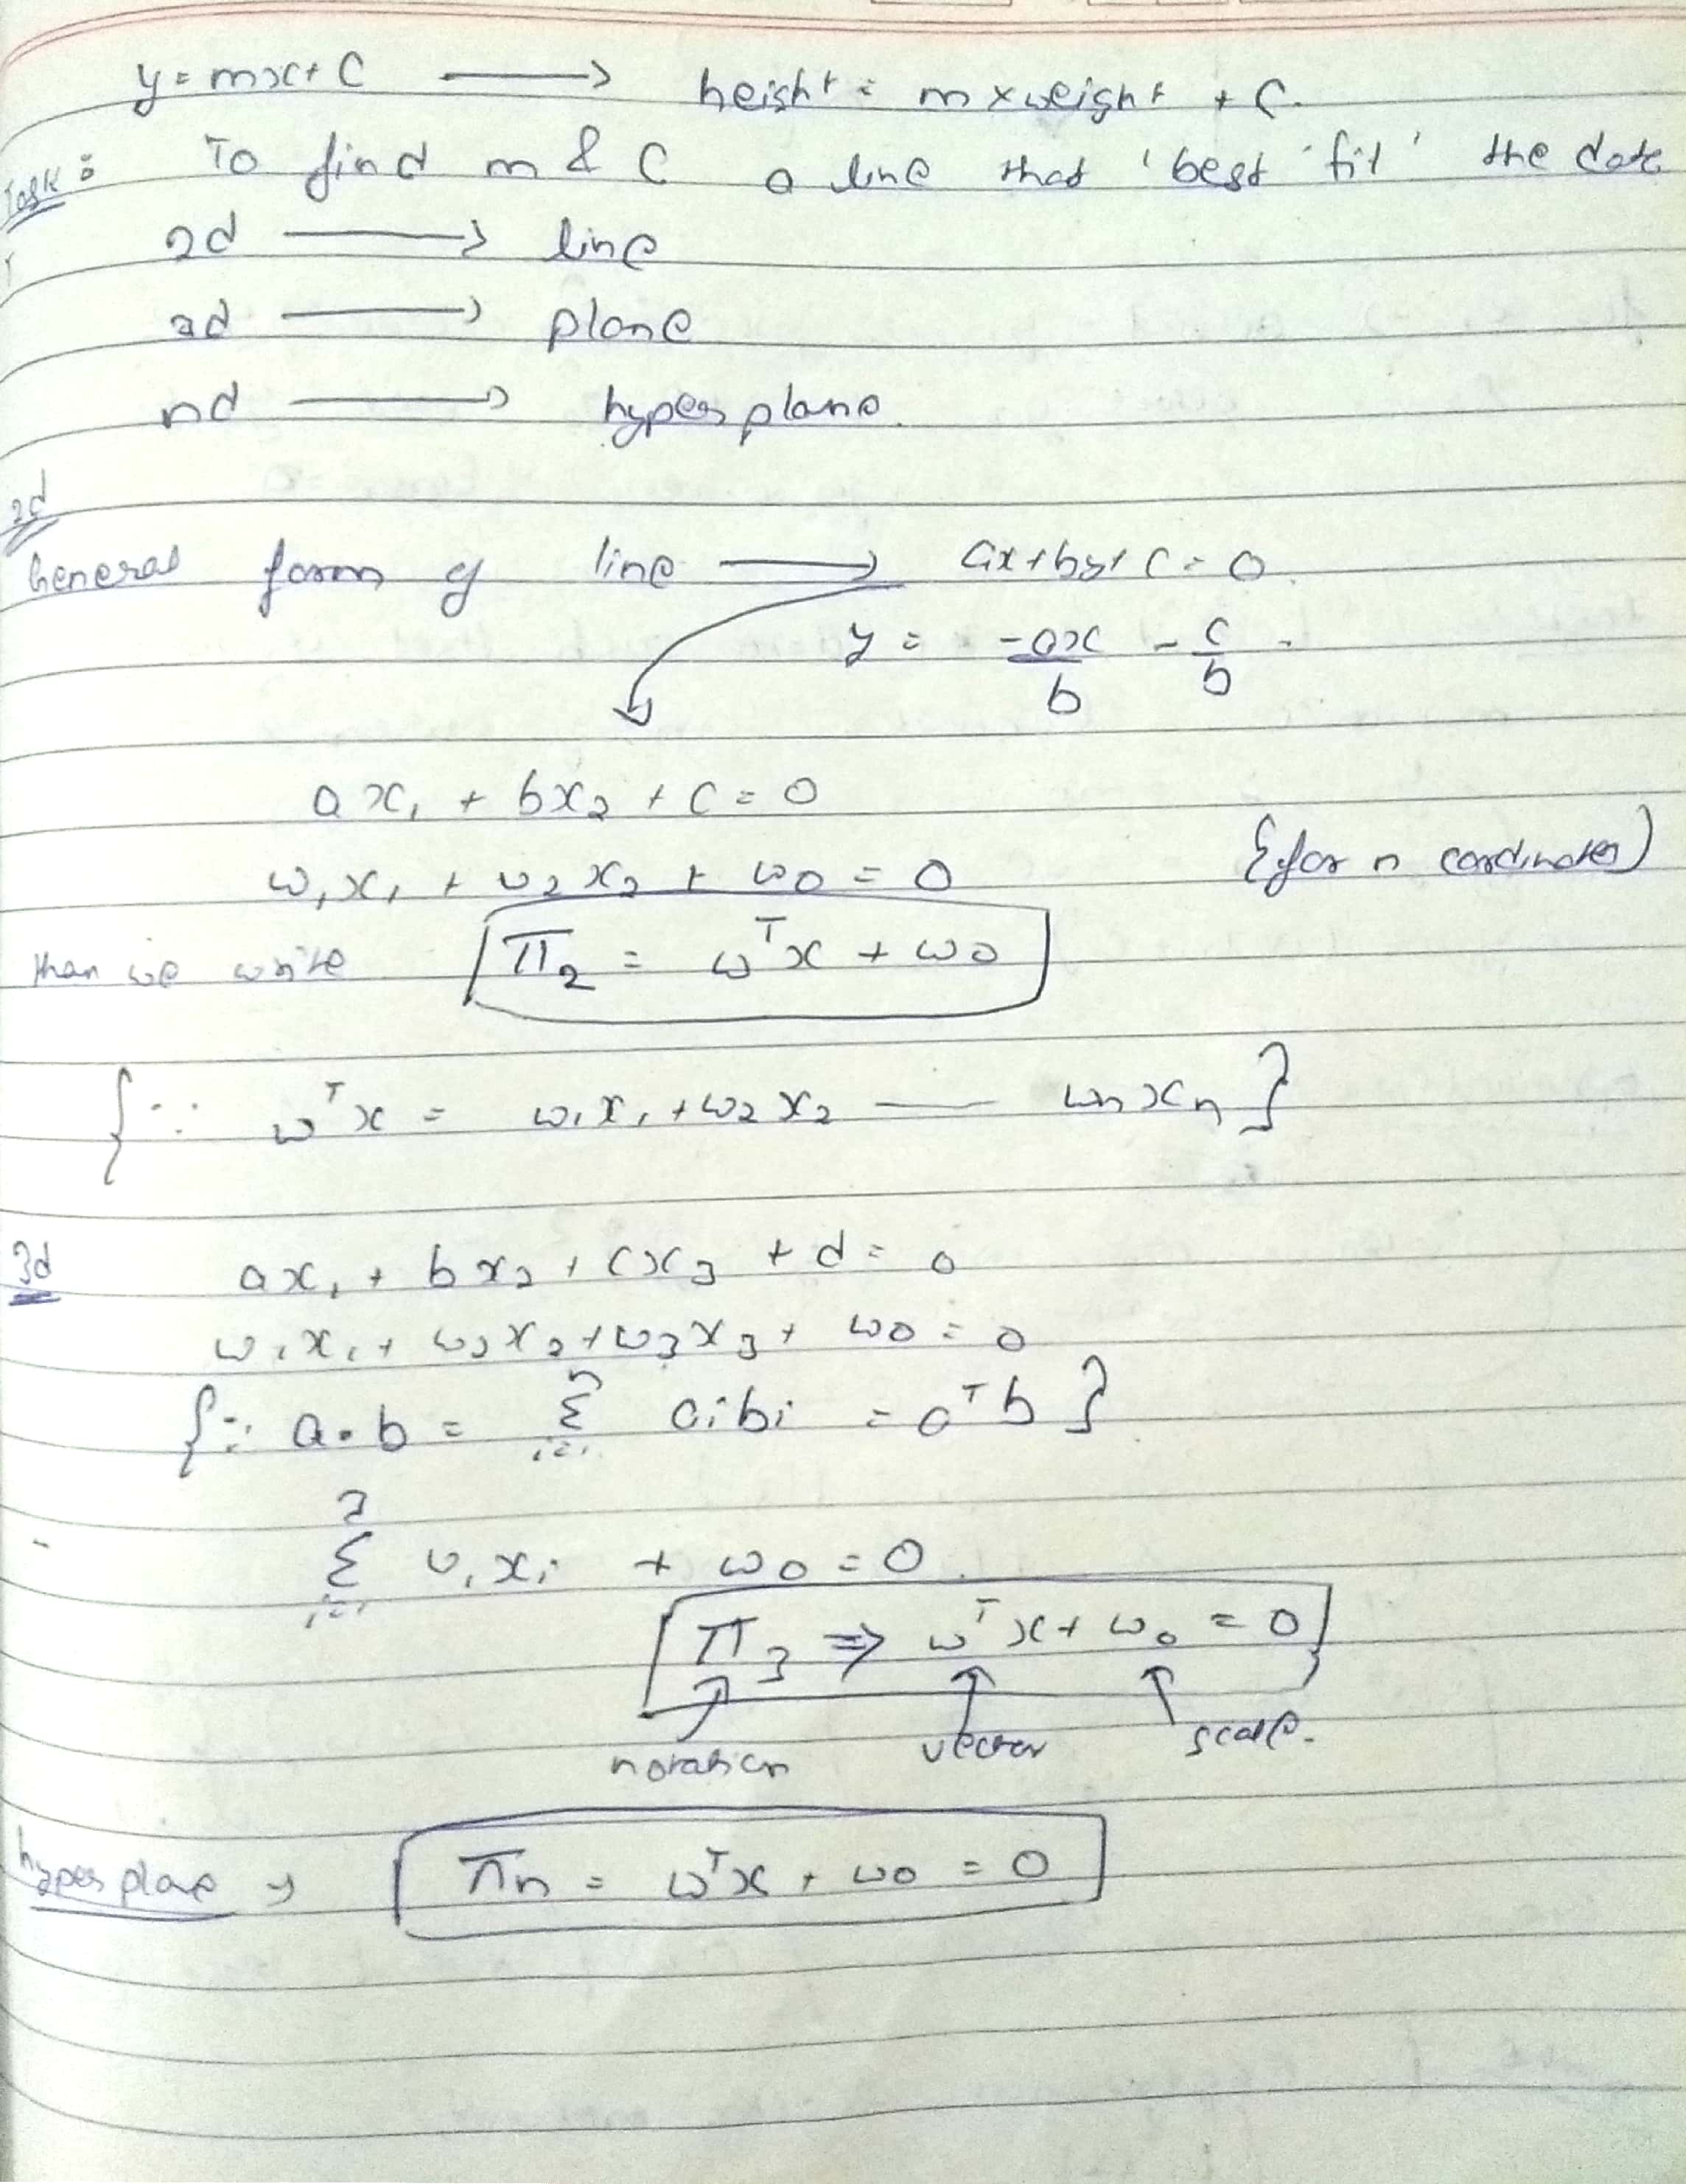 y = mx + C ⟶ height = m x weight + C.
Task : To find m & C a line that 'best fit' the data
2d ⟶ line
3d ⟶ plane
nd ⟶ hyper plane.
2d
General form of line ⟶ ax + by + C = 0.
y = -ax/b - c/b
ax₁ + bx₂ + C = 0
w₁x₁ + w₂x₂ + w0 = 0 {for n cordinates)
than we write π₂ = wᵀx + w0
{∵ wᵀx = w₁x₁ + w₂x₂ — wnxn}
3d ax₁ + bx₂ + cx₃ + d = 0
w₁x₁ + w₂x₂ + w₃x₃ + w0 = 0
{∵ a·b = Σⁿᵢ₌₁ aibi = aᵀb}
Σ³ᵢ₌₁ wᵢxᵢ + w0 = 0.
π₃ ⇒ wᵀx + w₀ = 0
notation vector
hyper plane → πn = wᵀx + w0 = 0